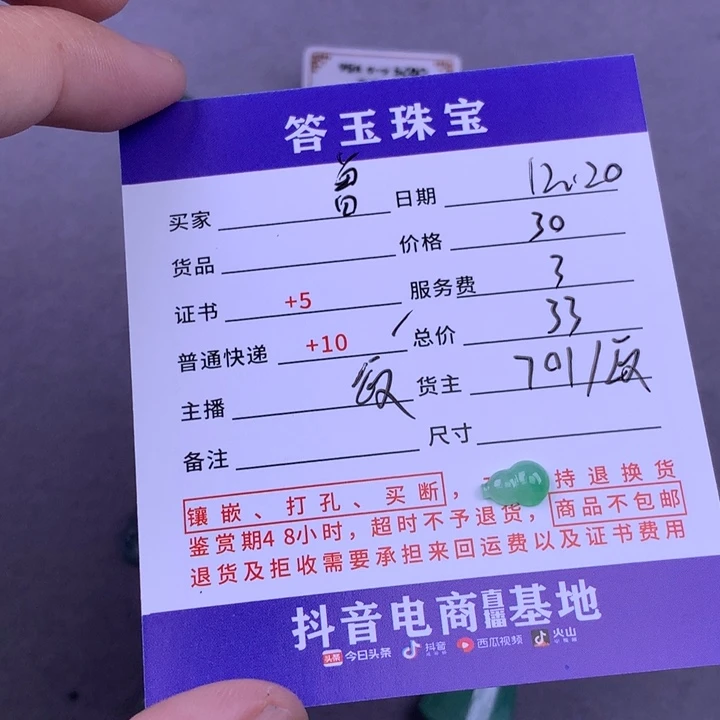 答玉珠宝
买家 日期 12.20
货品 价格 30
证书 +5 服务费 3
普通快递 +10 总价 33
主播 货主 701/
备注 尺寸
镶嵌、打孔、买断, 持退换货
鉴赏期48小时,超时不予退货,商品不包邮
退货及拒收需要承担来回运费以及证书费用
抖音电商直播基地
头条 今日头条 抖音 西瓜视频 火山